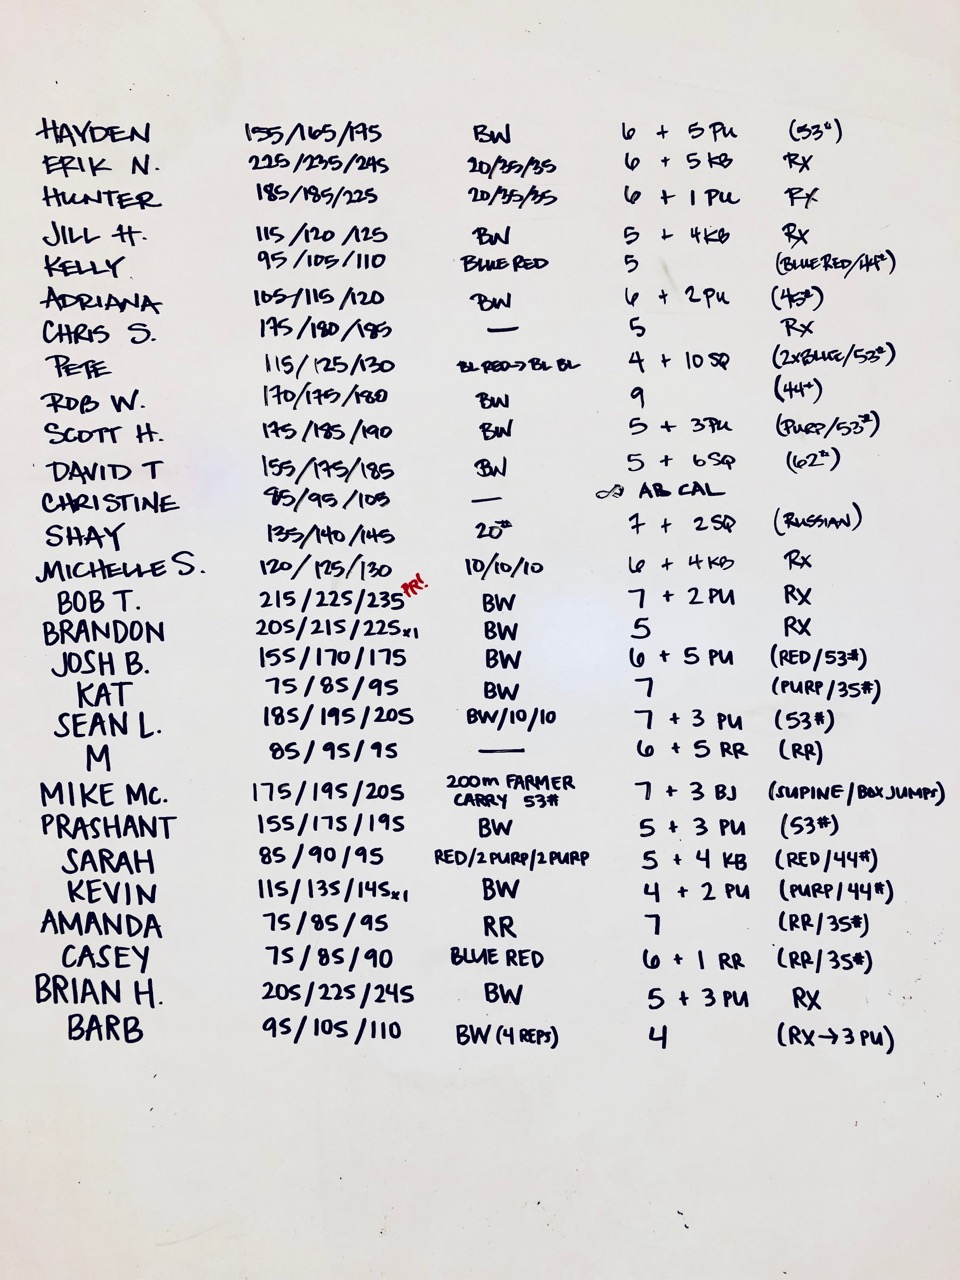 HAYDEN 155/165/175 BW 6 + 5 PU (53#)
ERIK N. 225/235/245 20/35/35 6 + 5 KB RX
HUNTER 185/185/225 20/35/35 6 + 1 PU RX
JILL H. 115/120/125 BW 5 + 4 KB RX
KELLY 95/105/110 BLUE RED 5 (BLUE RED/44#)
ADRIANA 105/115/120 BW 6 + 2 PU (45#)
CHRIS S. 175/180/185 — 5 RX
PETE 115/125/130 BL RED→BL BL 4 + 10 SQ (2xBLUE/53#)
ROB W. 170/175/180 BW 9 (44#)
SCOTT H. 175/185/190 BW 5 + 3 PU (PURP/53#)
DAVID T 155/175/185 BW 5 + 6 SQ (62#)
CHRISTINE 85/95/105 — ∞ AB CAL
SHAY 135/140/145 20# 7 + 2 SQ (RUSSIAN)
MICHELLE S. 120/125/130 10/10/10 6 + 4 KB RX
BOB T. 215/225/235 PR! BW 7 + 2 PU RX
BRANDON 205/215/225x1 BW 5 RX
JOSH B. 155/170/175 BW 6 + 5 PU (RED/53#)
KAT 75/85/95 BW 7 (PURP/35#)
SEAN L. 185/195/205 BW/10/10 7 + 3 PU (53#)
M 85/95/95 — 6 + 5 RR (RR)
MIKE MC. 175/195/205 200m FARMER CARRY 53# 7 + 3 BJ (SUPINE/BOX JUMPS)
PRASHANT 155/175/195 BW 5 + 3 PU (53#)
SARAH 85/90/95 RED/2 PURP/2 PURP 5 + 4 KB (RED/44#)
KEVIN 115/135/145x1 BW 4 + 2 PU (PURP/44#)
AMANDA 75/85/95 RR 7 (RR/35#)
CASEY 75/85/90 BLUE RED 6 + 1 RR (RR/35#)
BRIAN H. 205/225/245 BW 5 + 3 PU RX
BARB 95/105/110 BW (4 REPS) 4 (RX→3 PU)